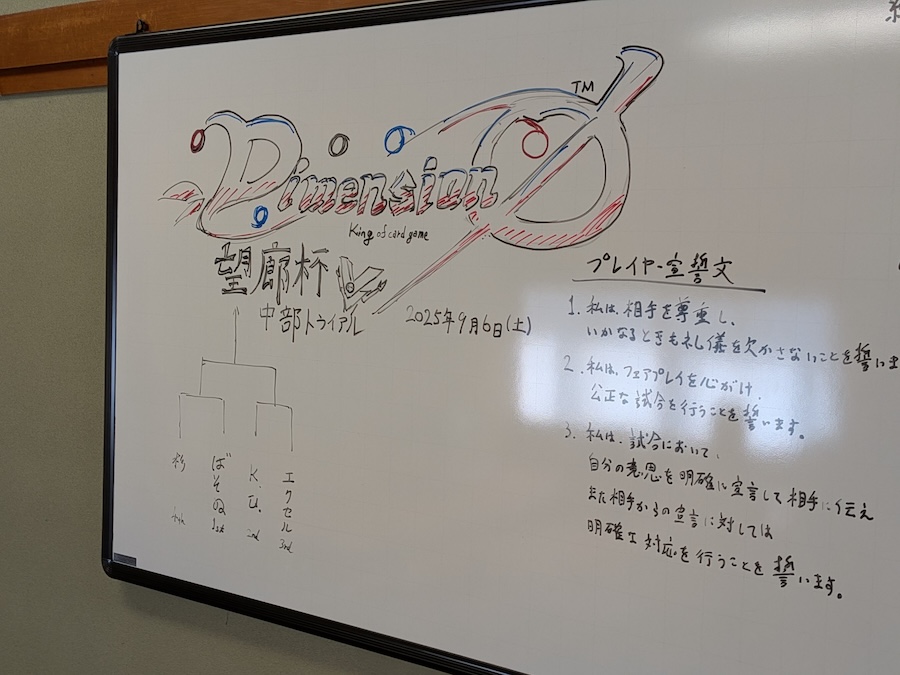 TM
Dimension 0
King of card game
望廊杯
中部トライアル
2025年9月6日(土)
杉
4th
ばその
1st
K.U.
2nd
エクセル
3rd
プレイヤー宣誓文
1. 私は、相手を尊重し、
いかなるときも礼儀を欠かさないことを誓いま
2. 私は、フェアプレイを心がけ、
公正な試合を行うことを誓います。
3. 私は、試合において、
自分の意思を明確に宣言して相手に伝え
また相手からの宣言に対しては
明確な対応を行うことを誓います。